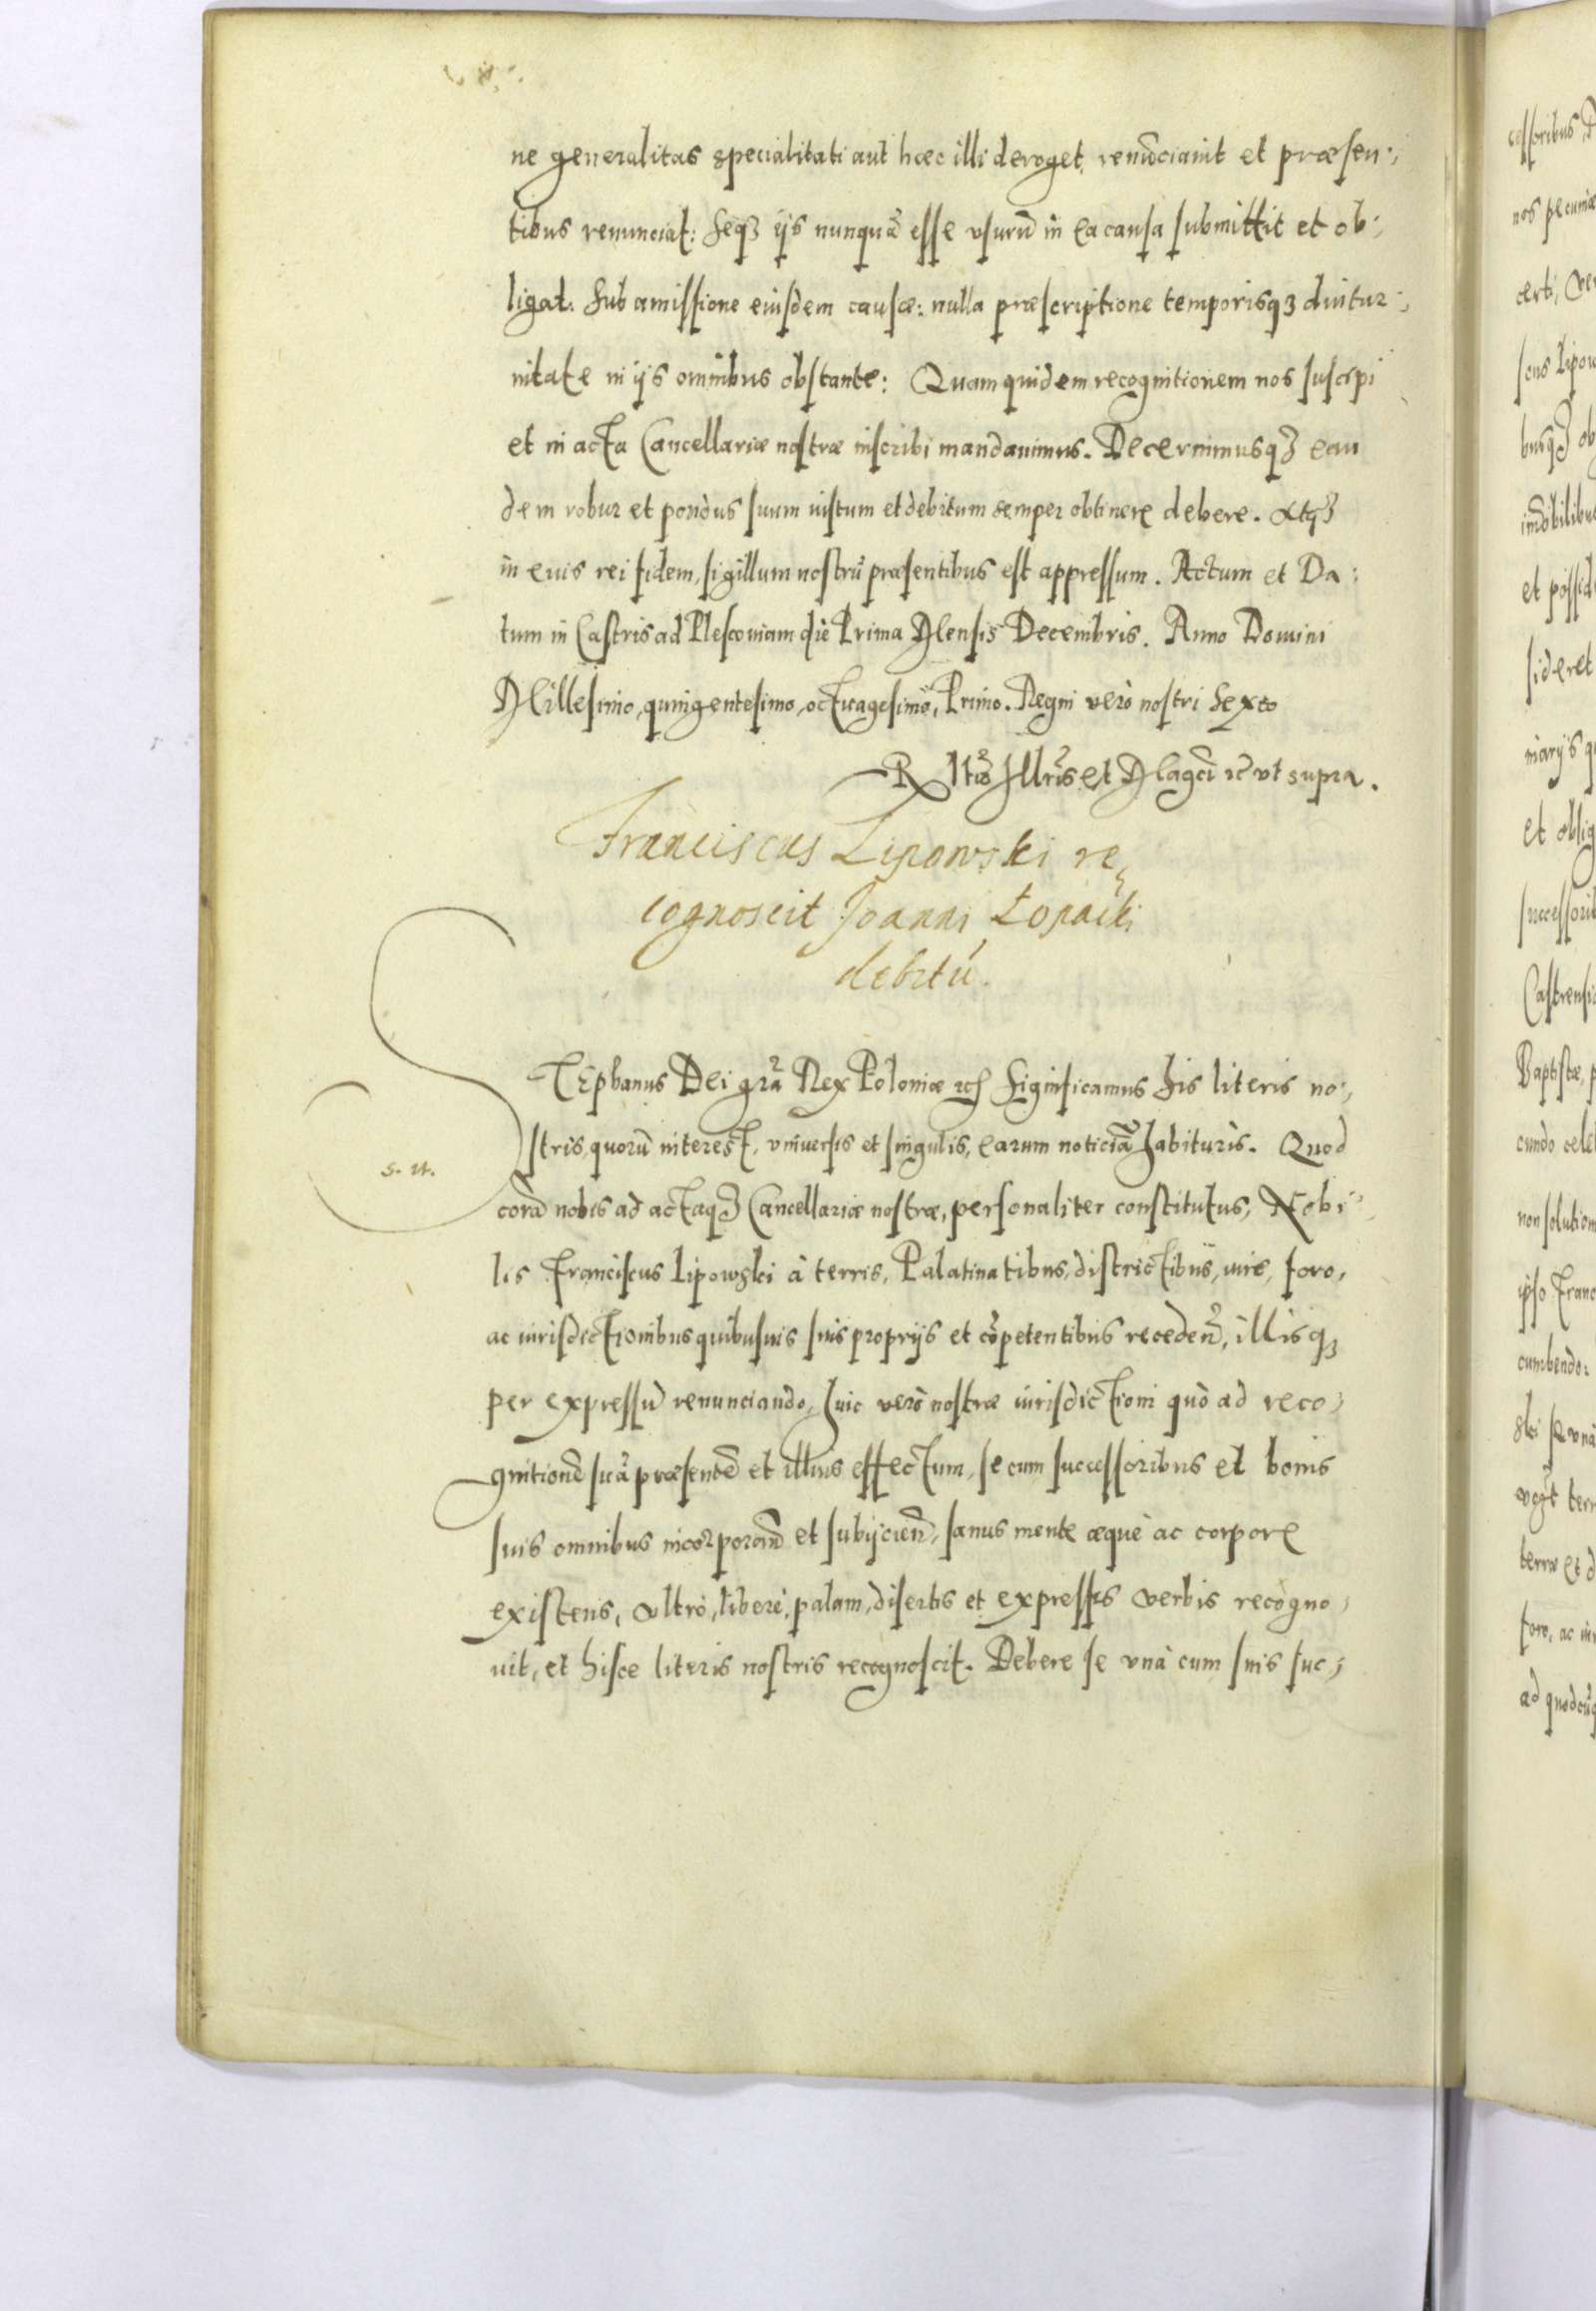 ne generalitas specialitati aut hæc illi deroget, renũciauit et præsen:
tibus renunciat: Seqʒ ijs nunquã esse vsurũ in ea causa submittit et ob:
ligat. Sub amissione eiusdem causæ: nulla præscriptione temporisqʒ diutur:
nitate in ijs omnibus obstante: Quam quidem recognitionem nos suscepi
et in acta Cancellariæ nostræ inscribi mandauimus. Decernimusqʒ ean
dem robur et pondus suum iustum et debitum semper obtinere debere. Atqʒ
in euis rei fidem, sigillum nostrũ præsentibus est appressum. Actum et Da:
tum in Castris ad Plescouiam die Prima Mensis Decembris. Anno Domini
Millesimo, quingentesimo, octuagesimo, Primo. Regni verò nostri Sexto
Rtio Illris et Magci rc vt supra.
Franciscus Lipowski re,
cognoscit Joanni Łopacki
debitũ.
STEphanus Dei gra Rex Poloniæ rch Significamus his literis no:
stris, quorũ interest, vniuersis et singulis, earum noticiã habituris. Quod
s. n.
corã nobis ad actaqʒ Cancellariæ nostræ, personaliter constitutus, Nobi:
lis Franciscus Lipowski à terris, Palatinatibus, districtibus, iure, foro,
ac iurisdictionibus quibusuis suis proprijs et cõpetentibus receden, illisqʒ
per expressũ renunciando, huic verò nostræ iurisdictioni quò ad reco:
gnitionẽ suã præsentẽ et illius effectum, se cum successoribus et bonis
suis omnibus incorporan et subijcien, sanus mente æque ac corpore
existens, vltrò, liberè, palam, disertis et expressis verbis recogno:
uit, et hisce literis nostris recognoscit. Debere se vnà cum suis suc: